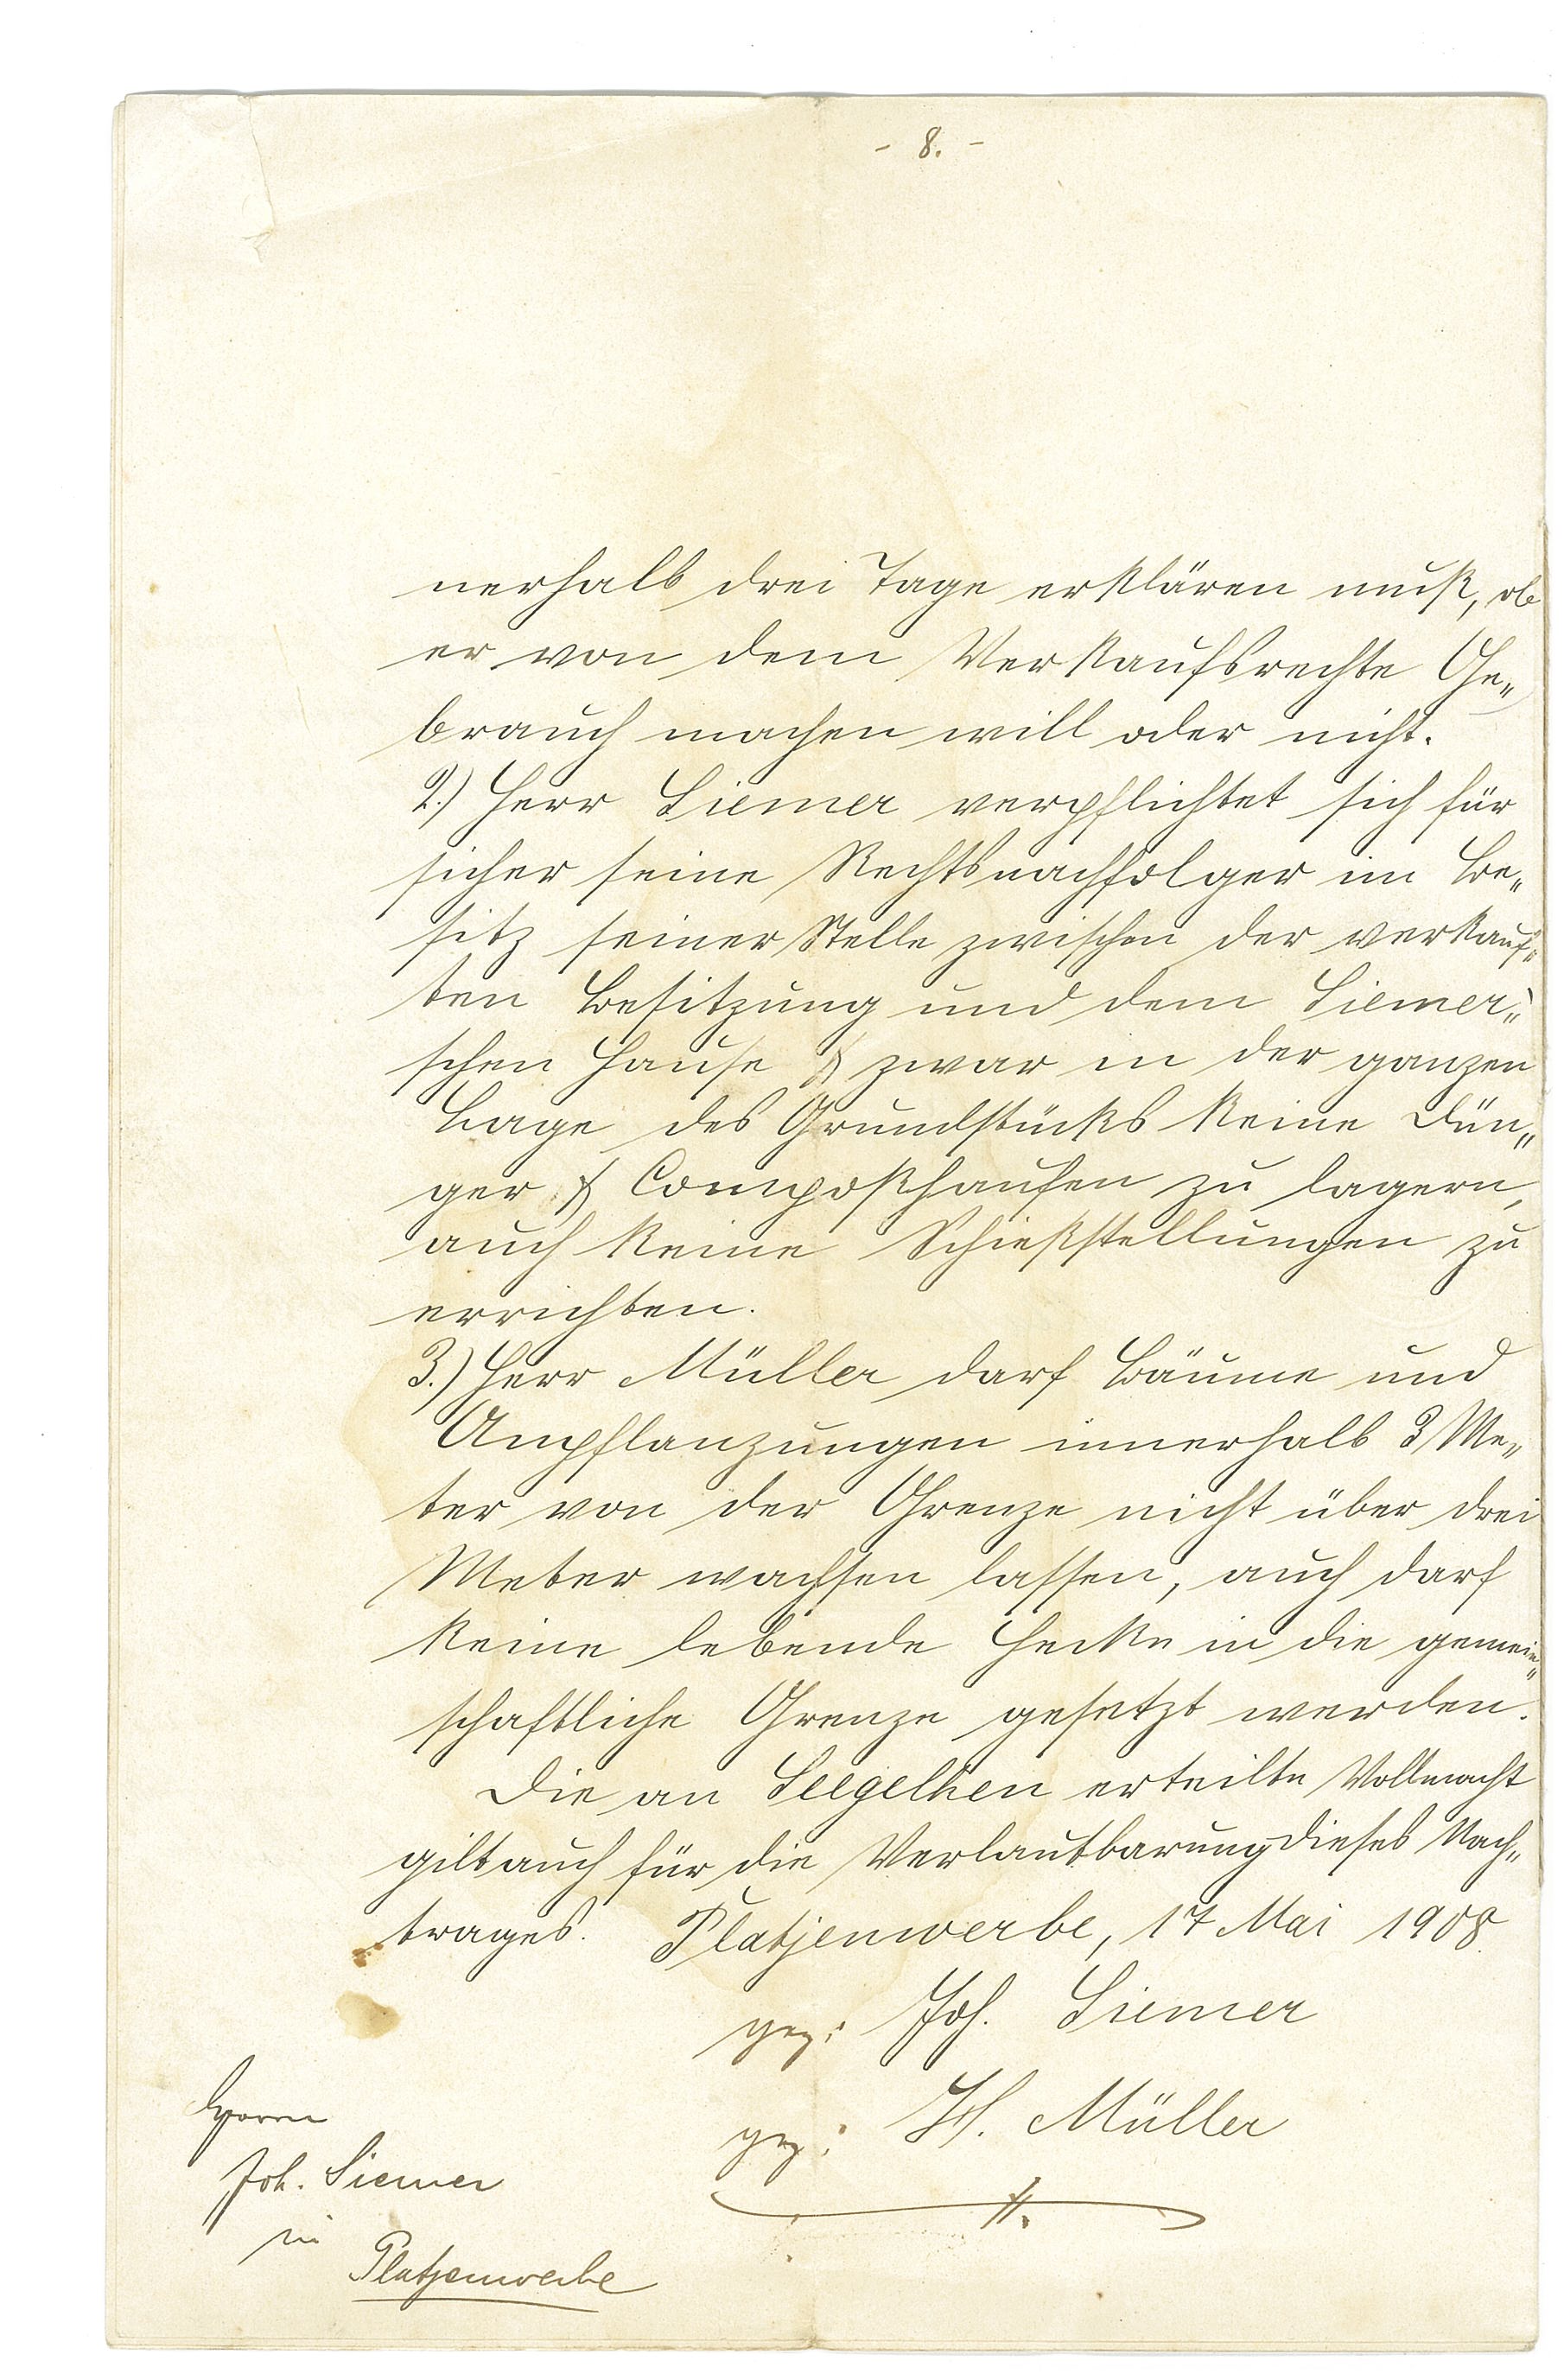 - 8. -
nerhalb drei Tage erklären muß, ob
er von dem Verkaufsrechte Ge„
brauch machen will oder nicht.
2.) Herr Siemer verpflichtet sich für
sicher seine Rechtsnachfolger im Be„
sitz seiner Stelle zwischen der verkauf„
ten Besitzung und dem Siemer„
schen Hause & zwar in der ganzen
Lage des Grundstücks keine Dün„
ger & Composthaufen zu lagern,
auch keine Schießstellungen zu
errichten.
3.) Herr Müller darf Bäume und
Anpflanzungen innerhalb 3 Me„
ter von der Grenze nicht über drei
Meter wachsen lassen, auch darf
keine lebende Hecke in die gemein„
schaftliche Grenze gesetzt werden.
Die an Seegelken erteilte Vollmacht
gilt auch für die Verlautbarung dieses Nach„
trages. Platjenwerbe, 17 Mai 1908.
gez: Joh. Siemer
gez: H. Müller
Herrn
Joh. Siemer
in
Platjenwerbe